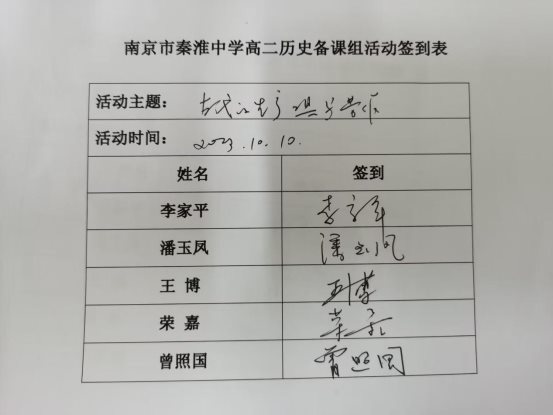 南京市秦淮中学高二历史备课组活动签到表
活动主题： 古代的生产工具与劳作
活动时间： 2023.10.10.
姓名 签到
李家平 李家平
潘玉凤 潘玉凤
王 博 王博
荣 嘉 荣嘉
曾照国 曾照国